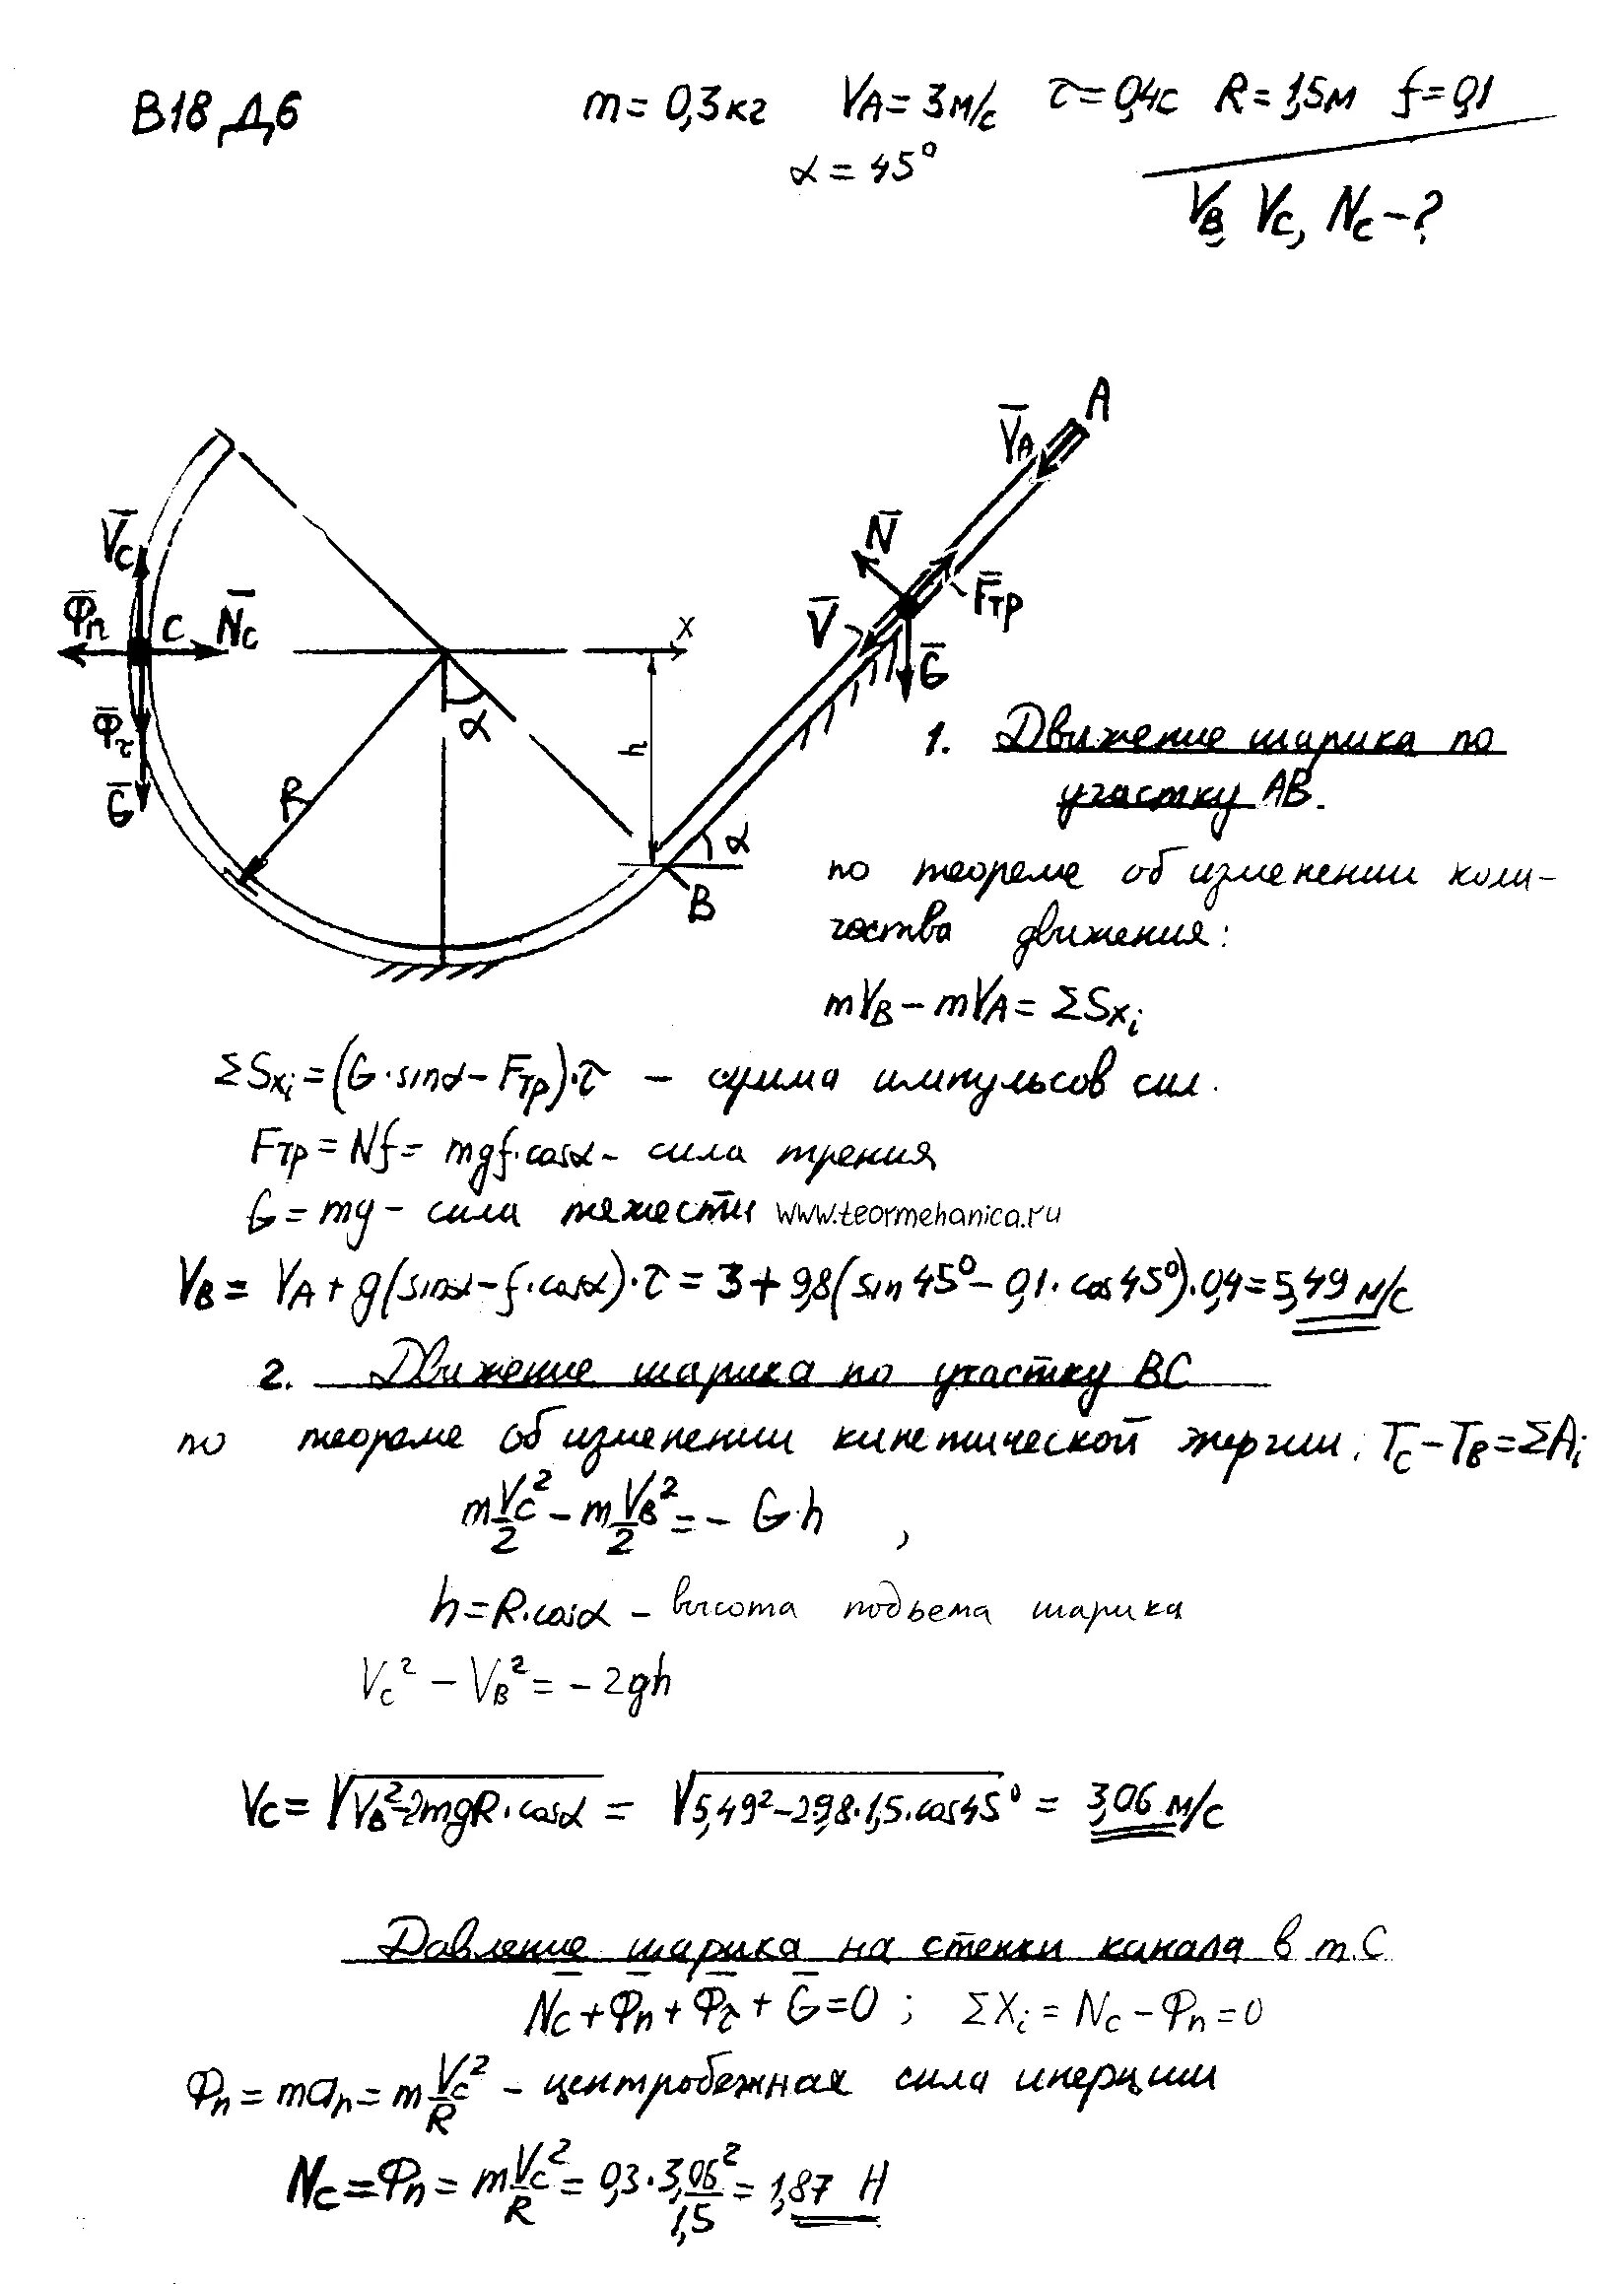 В18 Д6 m = 0,3 кг V_A = 3 м/с τ = 0,4с R = 1,5м f = 0,1
α = 45°
V_B, V_C, N_C – ?
A
V̄_A
N̄
V̄_C
F̄_тр
V̄
Φ̄_n C N̄_C x
Ḡ
Φ̄_τ α
h
R
Ḡ
α
B
1. Движение шарика по
участку АВ.
по теореме об изменении коли-
чества движения:
mV_B – mV_A = ΣS_xi
ΣS_xi = (G·sinα – F_тр)·τ – сумма импульсов сил.
F_тр = Nf = mgf·cosα – сила трения
G = mg – сила тяжести www.teormehanica.ru
V_B = V_A + g(sinα – f·cosα)·τ = 3 + 9,8(sin 45° – 0,1·cos 45°)·0,4 = 5,49 м/с
2. Движение шарика по участку ВС
по теореме об изменении кинетической энергии: T_C – T_B = ΣA_i
mV_C²/2 – mV_B²/2 = – G·h ,
h = R·cosα – высота подьема шарика
V_C² – V_B² = – 2gh
V_C = √(V_B² – 2mgR·cosα) = √(5,49² – 2·9,8·1,5·cos45°) = 3,06 м/с
Давление шарика на стенки канала в т.С
N̄_C + Φ̄_n + Φ̄_τ + Ḡ = 0 ; ΣX_i = N_C – Φ_n = 0
Φ_n = ma_n = mV_C²/R – центробежная сила инерции
N_C = Φ_n = mV_C²/R = 0,3·3,06²/1,5 = 1,87 Н